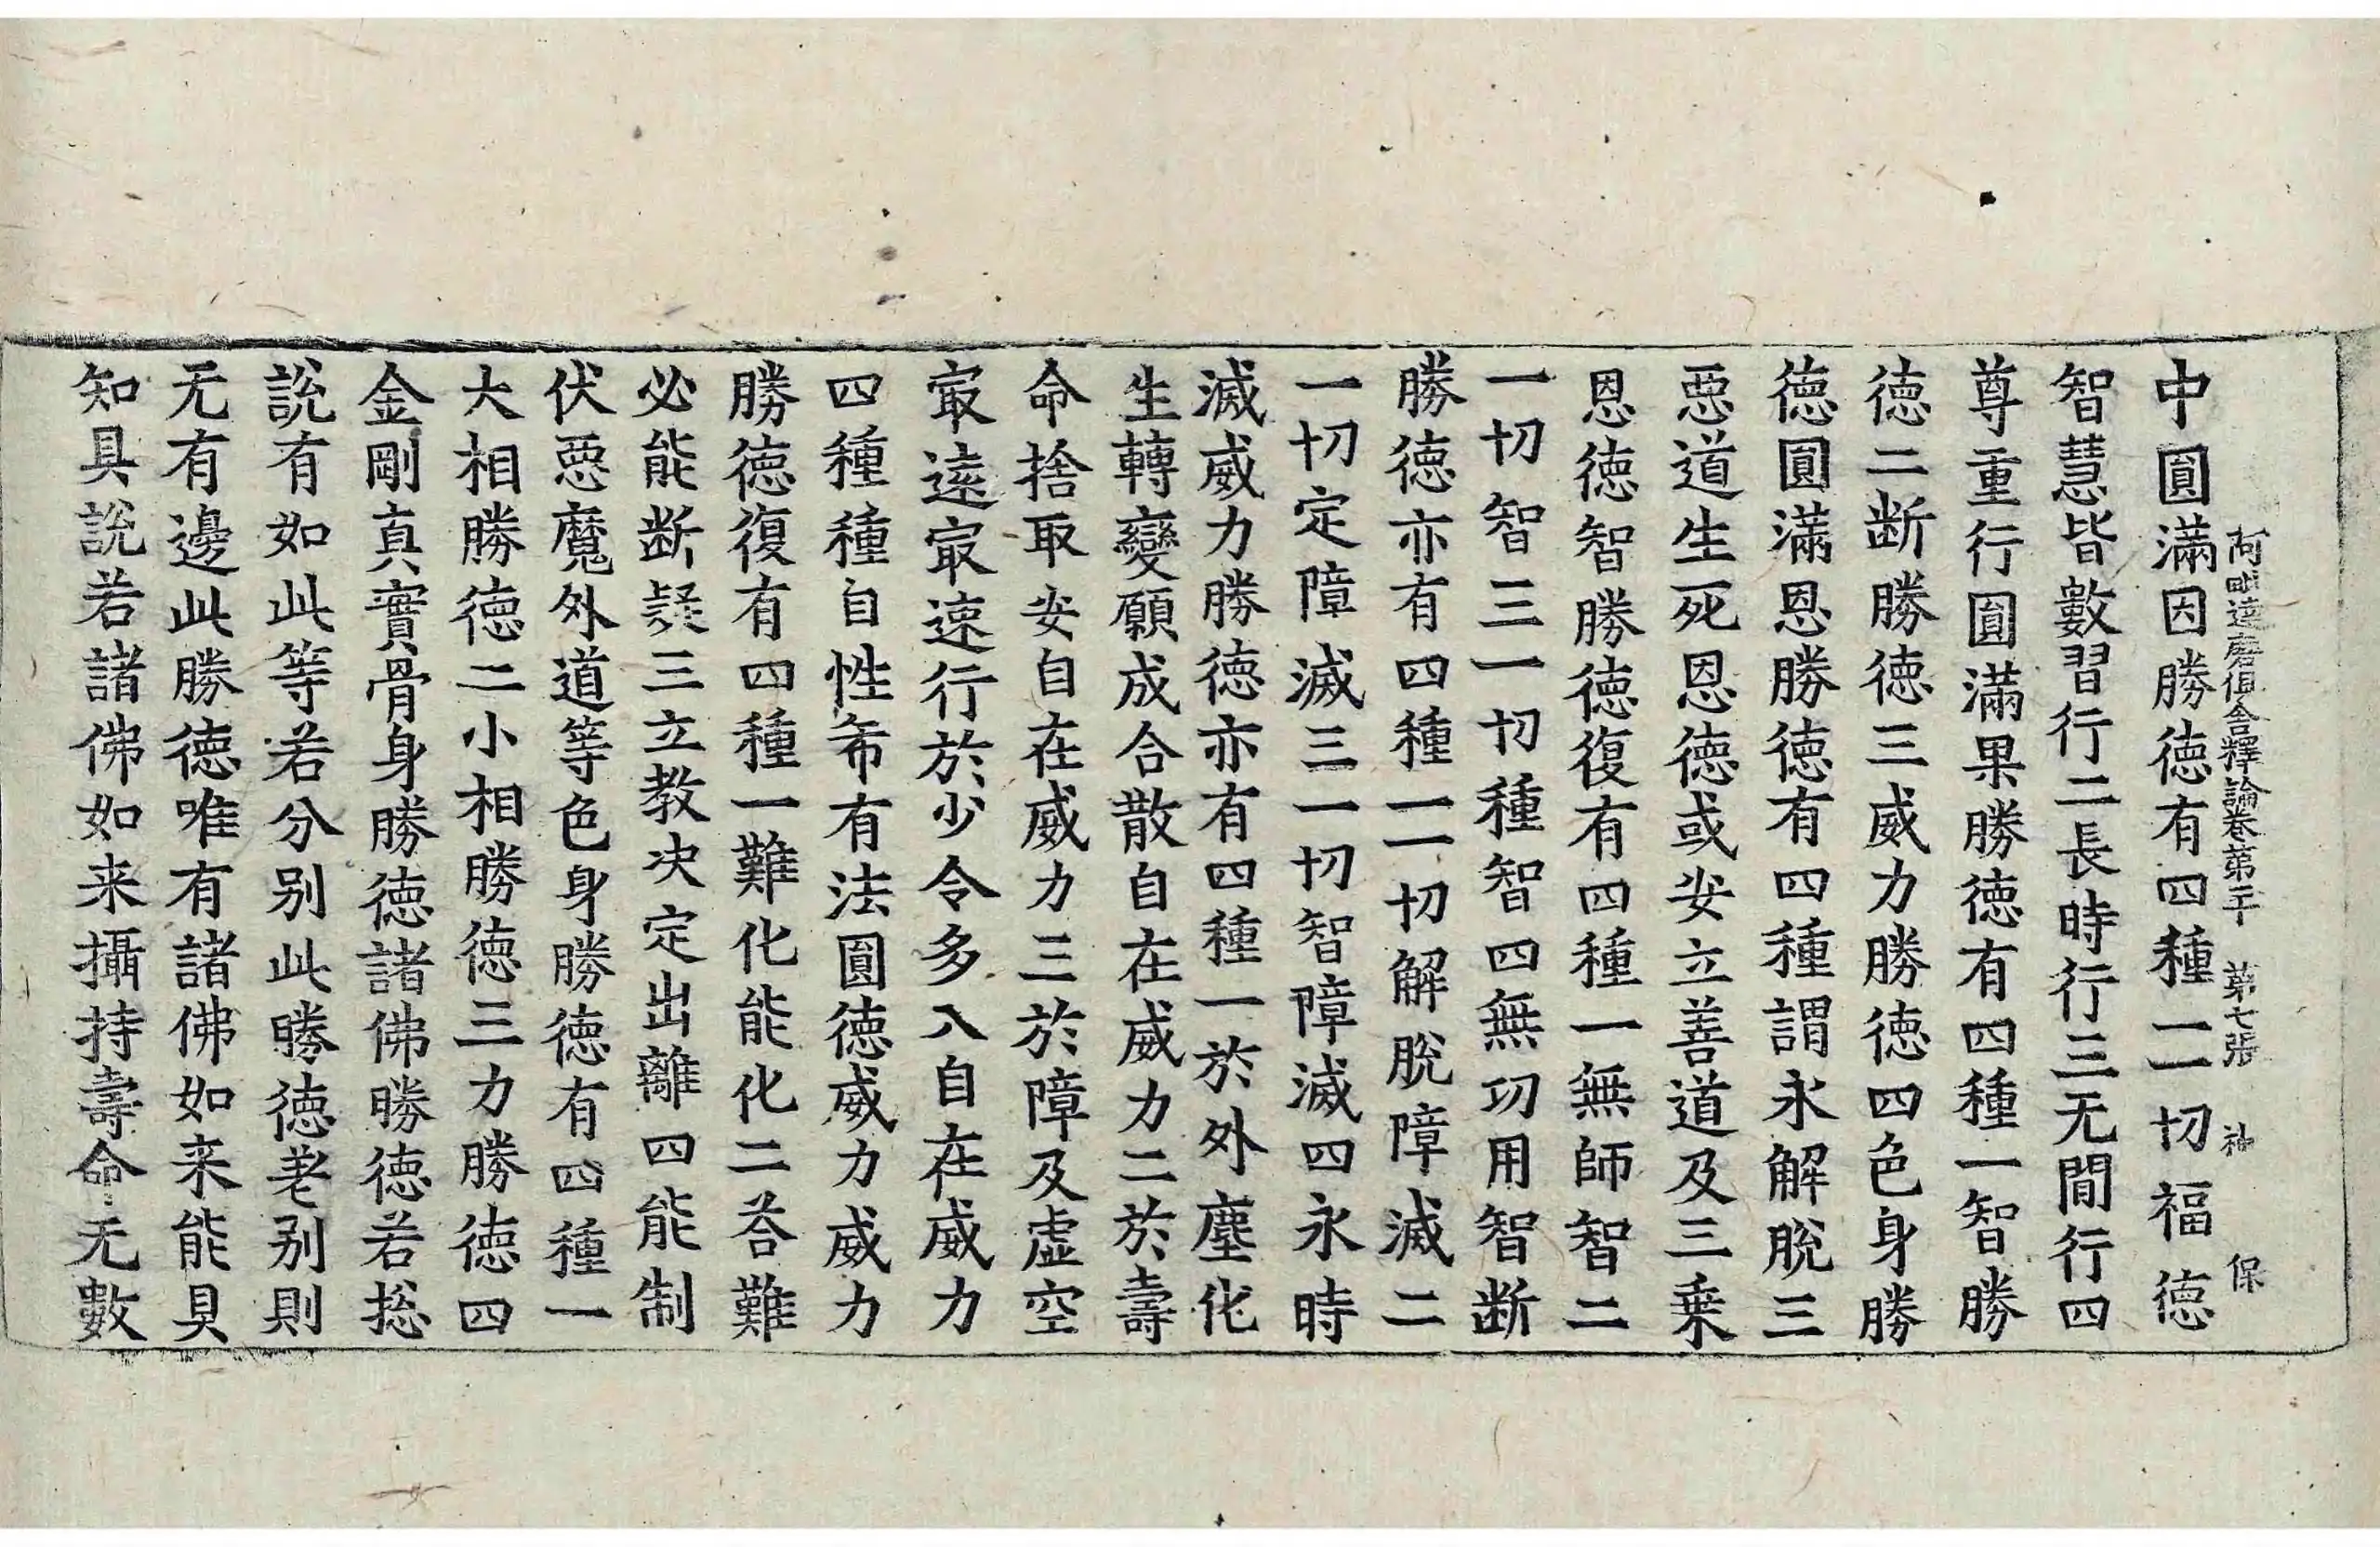 阿毗達磨俱舍釋論卷第二十 第七張 神 保
中圓滿因勝德有四種一一切福德
智慧皆數習行二長時行三无間行四
尊重行圓滿果勝德有四種一智勝
德二断勝德三威力勝德四色身勝
德圓滿恩勝德有四種謂永解脫三
惡道生死恩德或安立善道及三乗
恩德智勝德復有四種一無師智二
一切智三一切種智四無功用智断
勝德亦有四種一一切解脫障滅二
一切定障滅三一切智障滅四永時
滅威力勝德亦有四種一於外塵化
生轉變願成合散自在威力二於壽
命捨取安自在威力三於障及虛空
㝡遠㝡速行於少令多入自在威力
四種種自性希有法圓德威力威力
勝德復有四種一難化能化二荅難
必能断疑三立教决定出離四能制
伏惡魔外道等色身勝德有四種一
大相勝德二小相勝德三力勝德四
金剛真實骨身勝德諸佛勝德若捴
說有如此等若分别此勝德差别則
无有邊此勝德唯有諸佛如来能具
知具說若諸佛如来攝持壽命无數